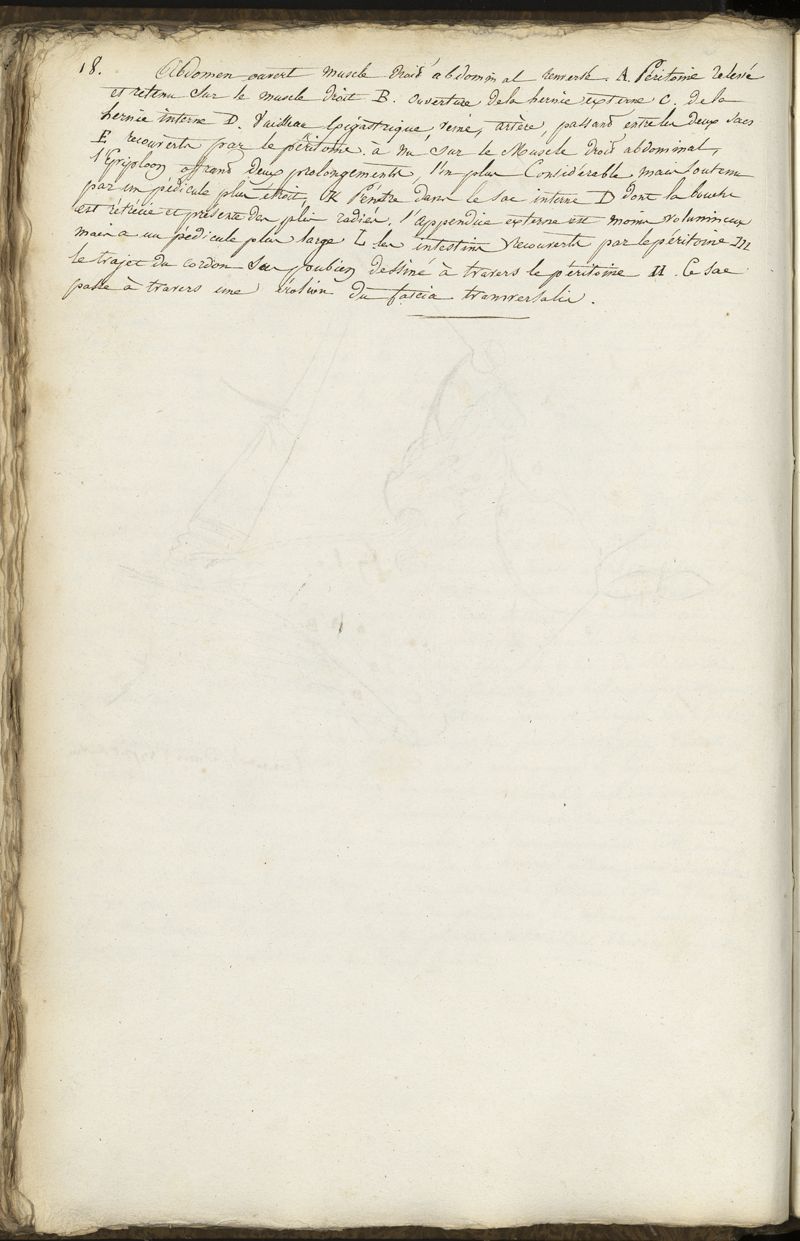 18. Abdomen ouvert muscle droit abdominal renversé. A Péritoine relevé
et retenu sur le muscle droit B. ouverture de la hernie externe C. de la
hernie interne D. Vaisseaux Epigastrique, veine, artère, passant entre les deux sacs
E recouverts par le péritoine à nu sur le Muscle droit abdominal,
l'Epiploon offrant deux prolongements, l'un plus Considérable, mais soutenu
par un pédicule plus étroit, K Penètre dans le sac interne D dont la bouche
est rétrécie et présente des plis radiés, l'appendice externe est moins volumineux
mais a un pédicule plus large L les intestins recouverts par le péritoine M
le trajet du cordon sus pubien dessiné à travers le péritoine H. Ce sac
passe à travers une du fascia transversalis.